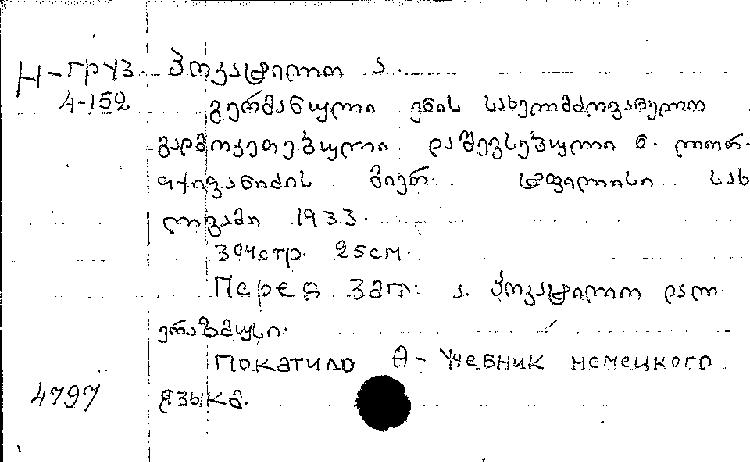 Н-груз პოკატილო ა.
4-152 გერმანული ენის სახელმძღვანელო
გადმოკეთებული და შევსებული მ. ლორ-
თქიფანიძის მიერ. ტფილისი. სახ
ლგამი 1933.
304стр. 25см.
Перед загл: ა. პოკატილო და
ერაზმუსი.
Покатило А - Учебник немецкого
4797 языка.